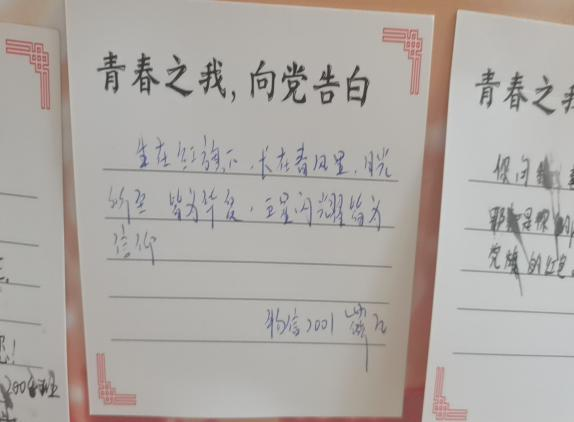 青春之我，向党告白
生在红旗下，长在春风里，目光
所至 皆为华夏，五星闪耀皆为
信仰
物信2001
青春之我
你问
那是很
党旗的红色